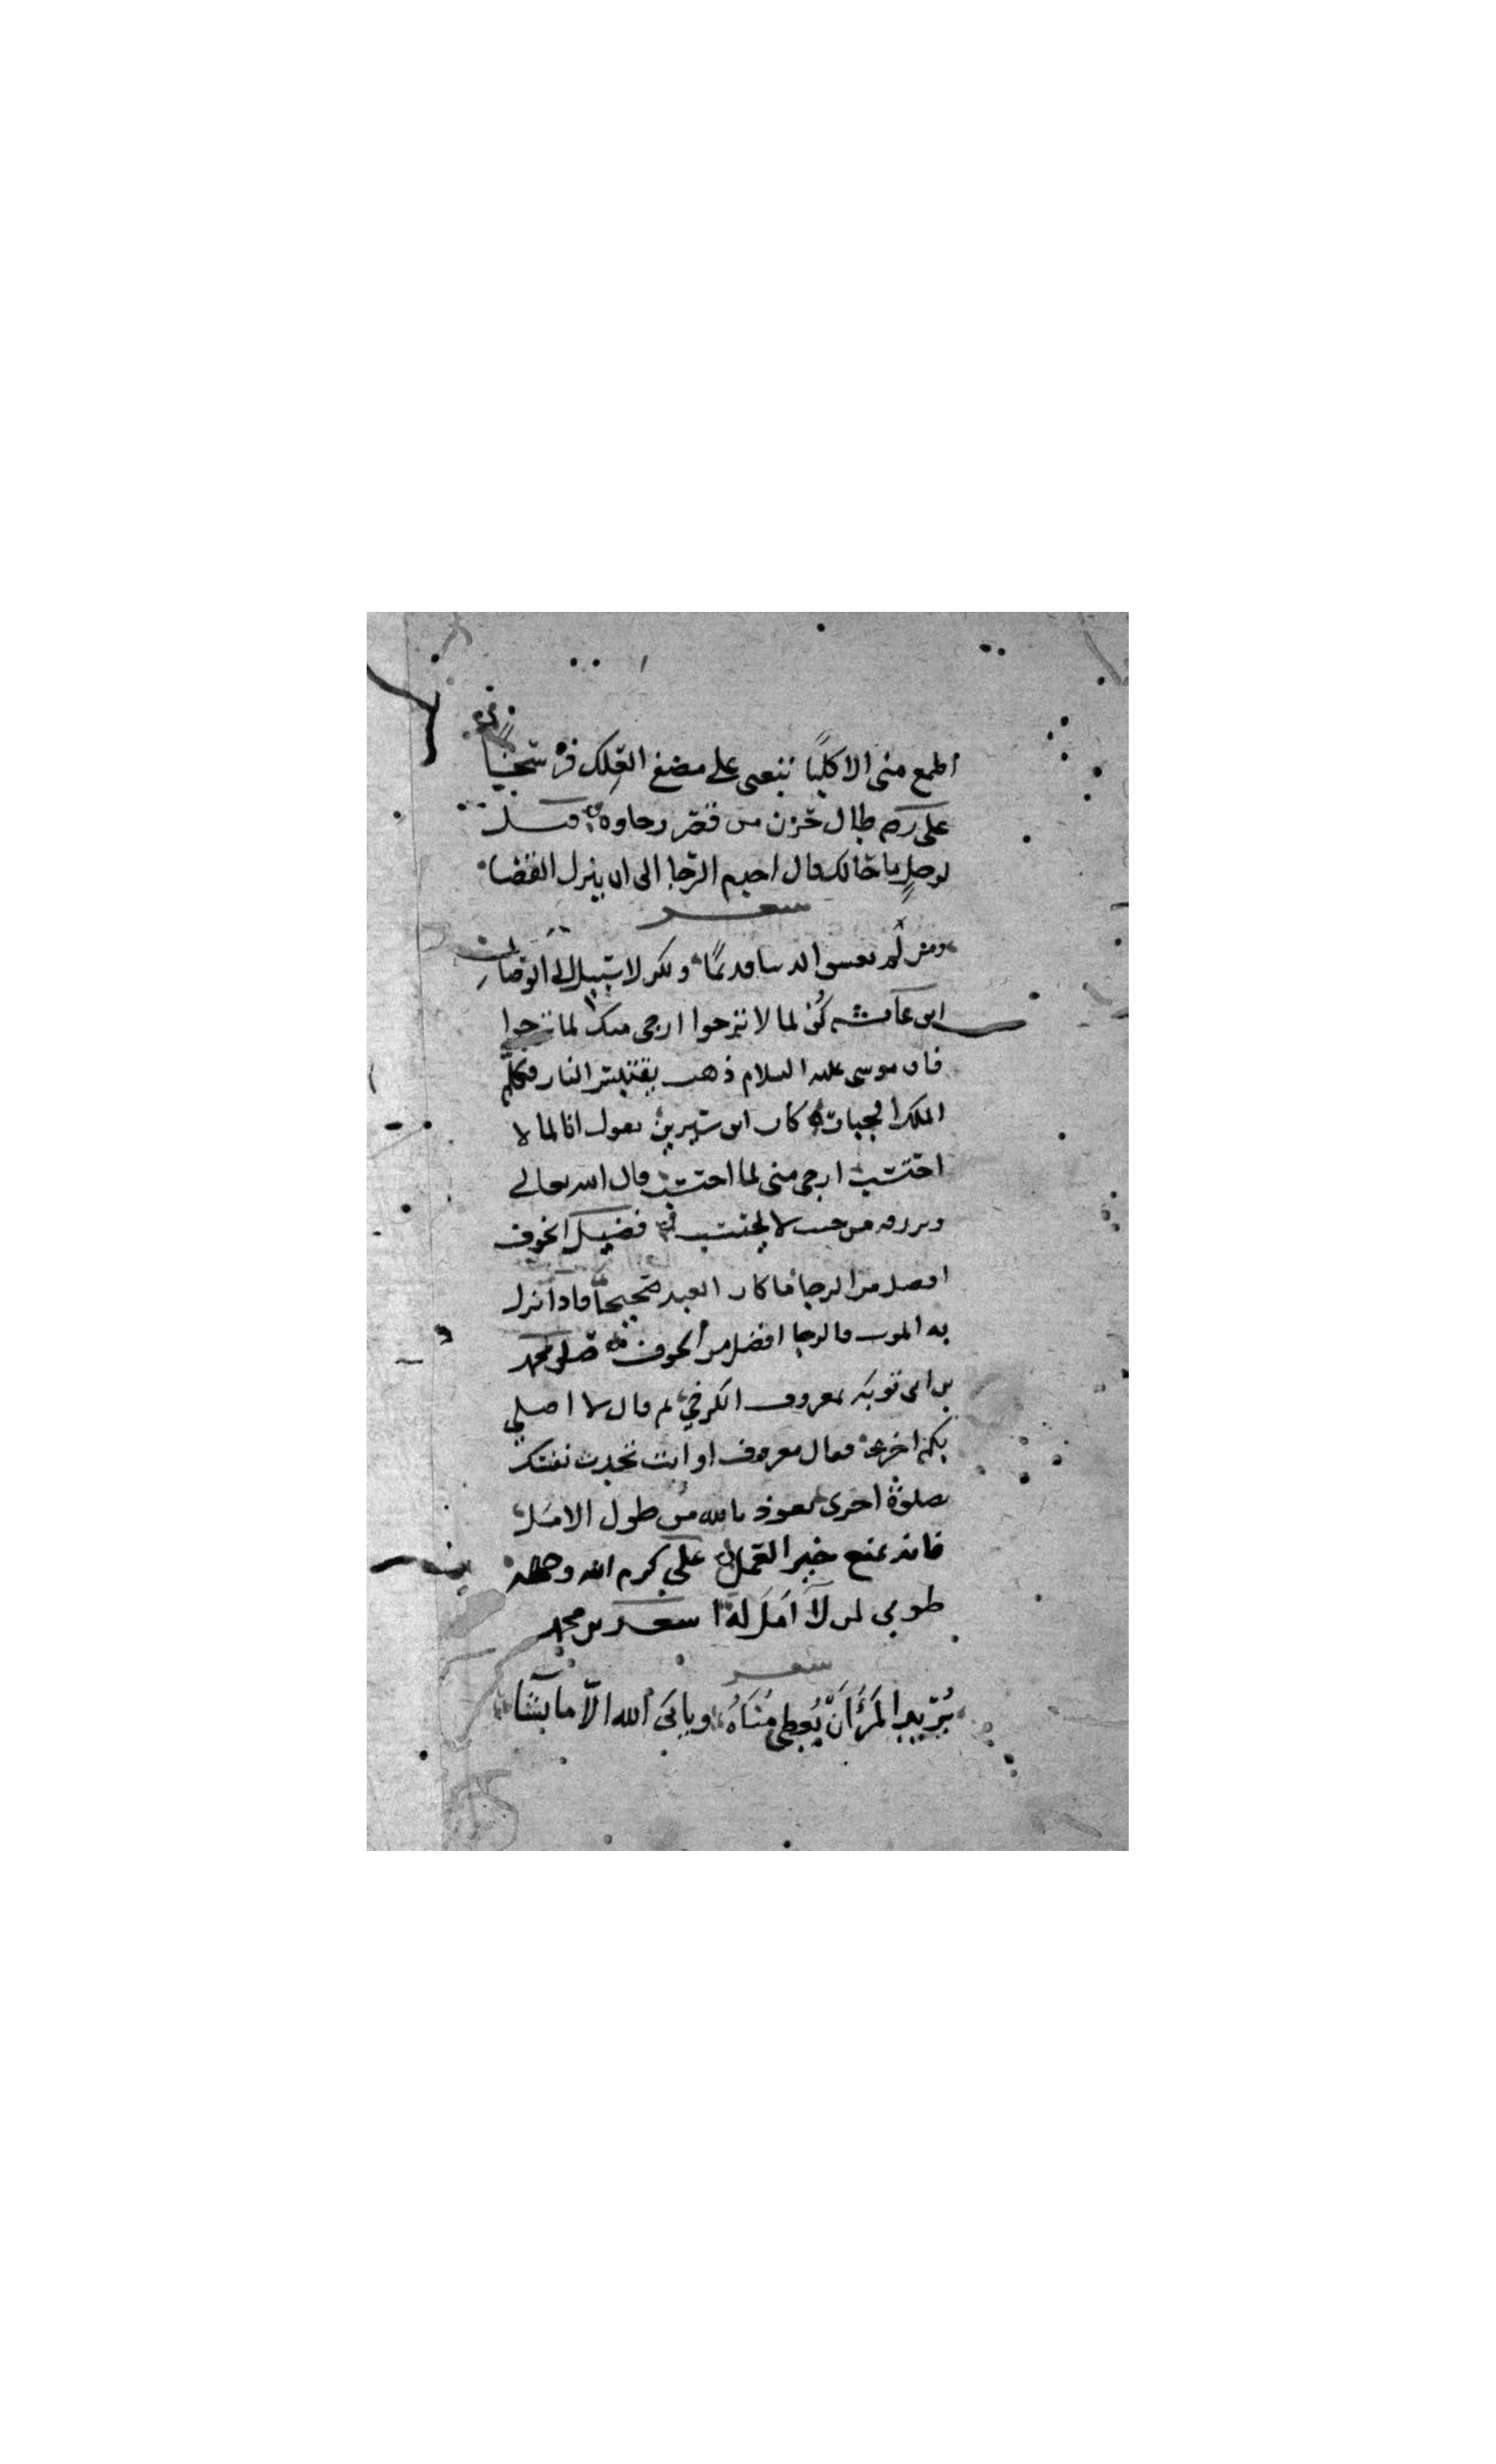 اطمع منى الا كلبا تبعنى على مضغ العلك فرسخا
على ركبه طال حزن من قصر رجاوه قيل
لرجل ما حالك قال احدم الرجا الى ان ينزل القضا
شعر
ومن لم يعسق الدنيا قديما ولكن لا سبيل الى الوصال
ابن عائشه كن لما لا ترجوا ارجى منك لما ترجوا
فان موسى عليه السلام ذهب يقتبس النار فكلمه
الملك الجبار كان ابن سيرين يقول انا لما لا
احتسب ارجى منى لما احتسب قال الله تعالى
ويرزقه من حيث لا يحتسب فضيل الخوف
افضل من الرجا ما كان العبد صحيحا فاذا نزل
به الموت فالرجا افضل من الخوف صلى محمد
بن ابى توبه بمعروف الكرخي ثم قال لا اصلي
بكم اخرى فقال معروف او انت تحدث نفسك
بصلوة اخرى نعوذ بالله من طول الامل
فانه يمنع خير العمل على كرم الله وجهه
طوبى لمن لا امل له سعد بن محمد
شعر
يريد المرء ان يعطى مناه ويابى الله الا ما يشا